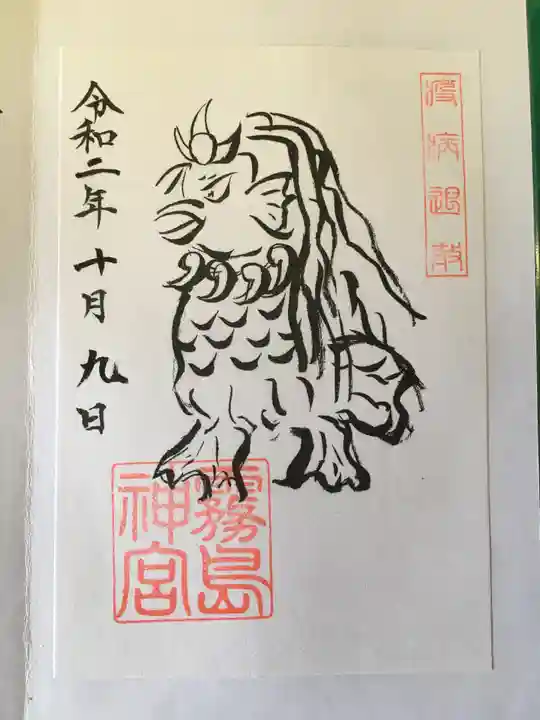 疫病退散
令和二年十月九日
霧島
神宮